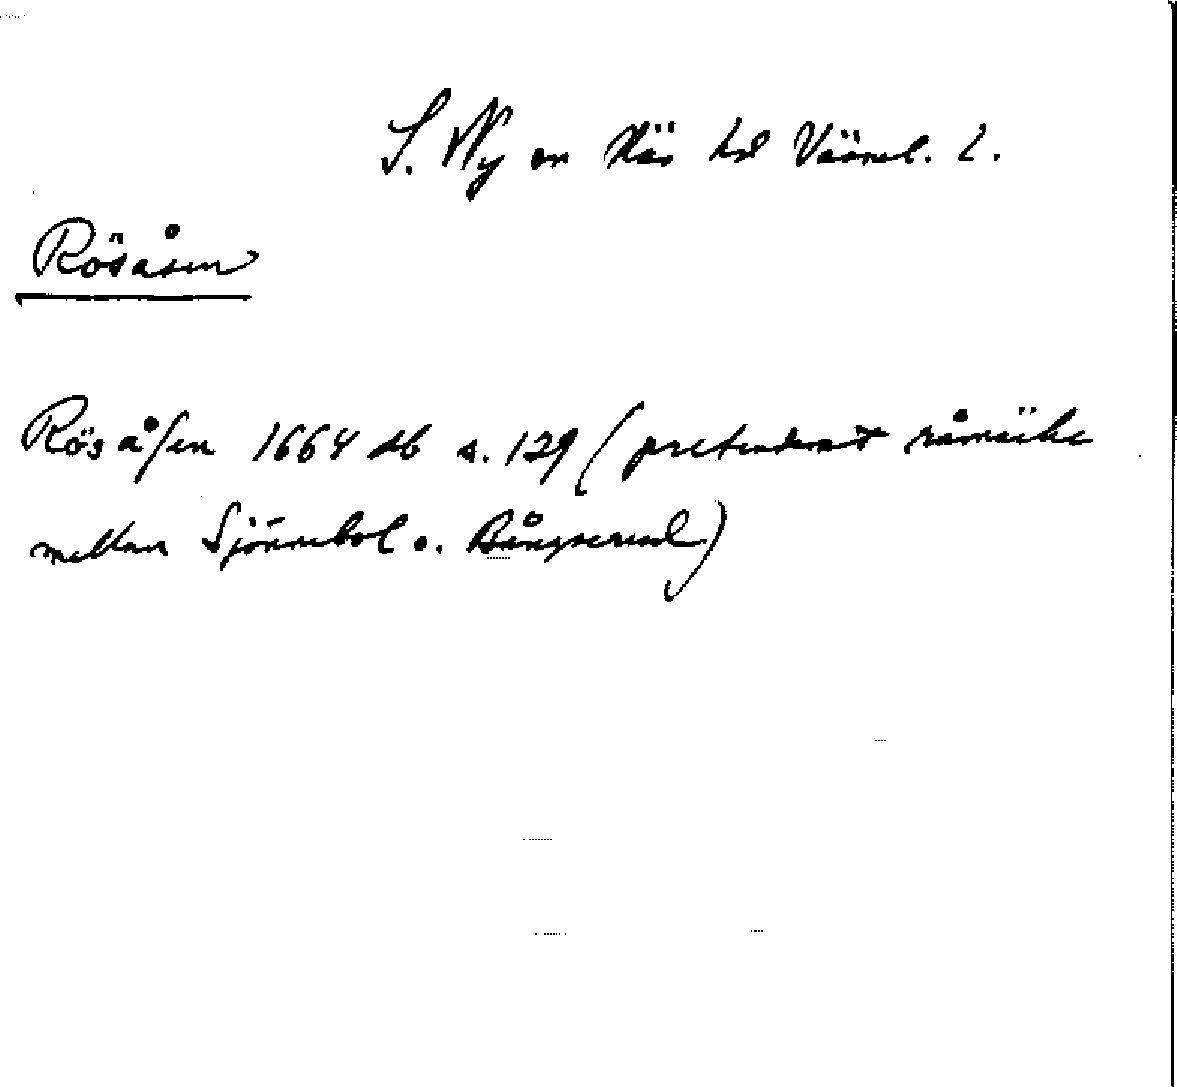 S. Ny sn Näs hd Värml. l.
Rösåsen
Rösåſen 1664 db s. 129 (pretenderat råmärke
mellan Sjönnebol o. Bångserud)